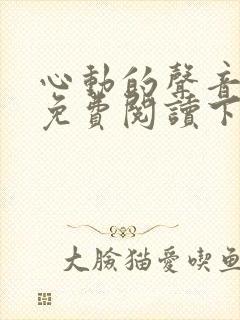 心動的聲音
免費閱讀下
大臉猫愛喫魚